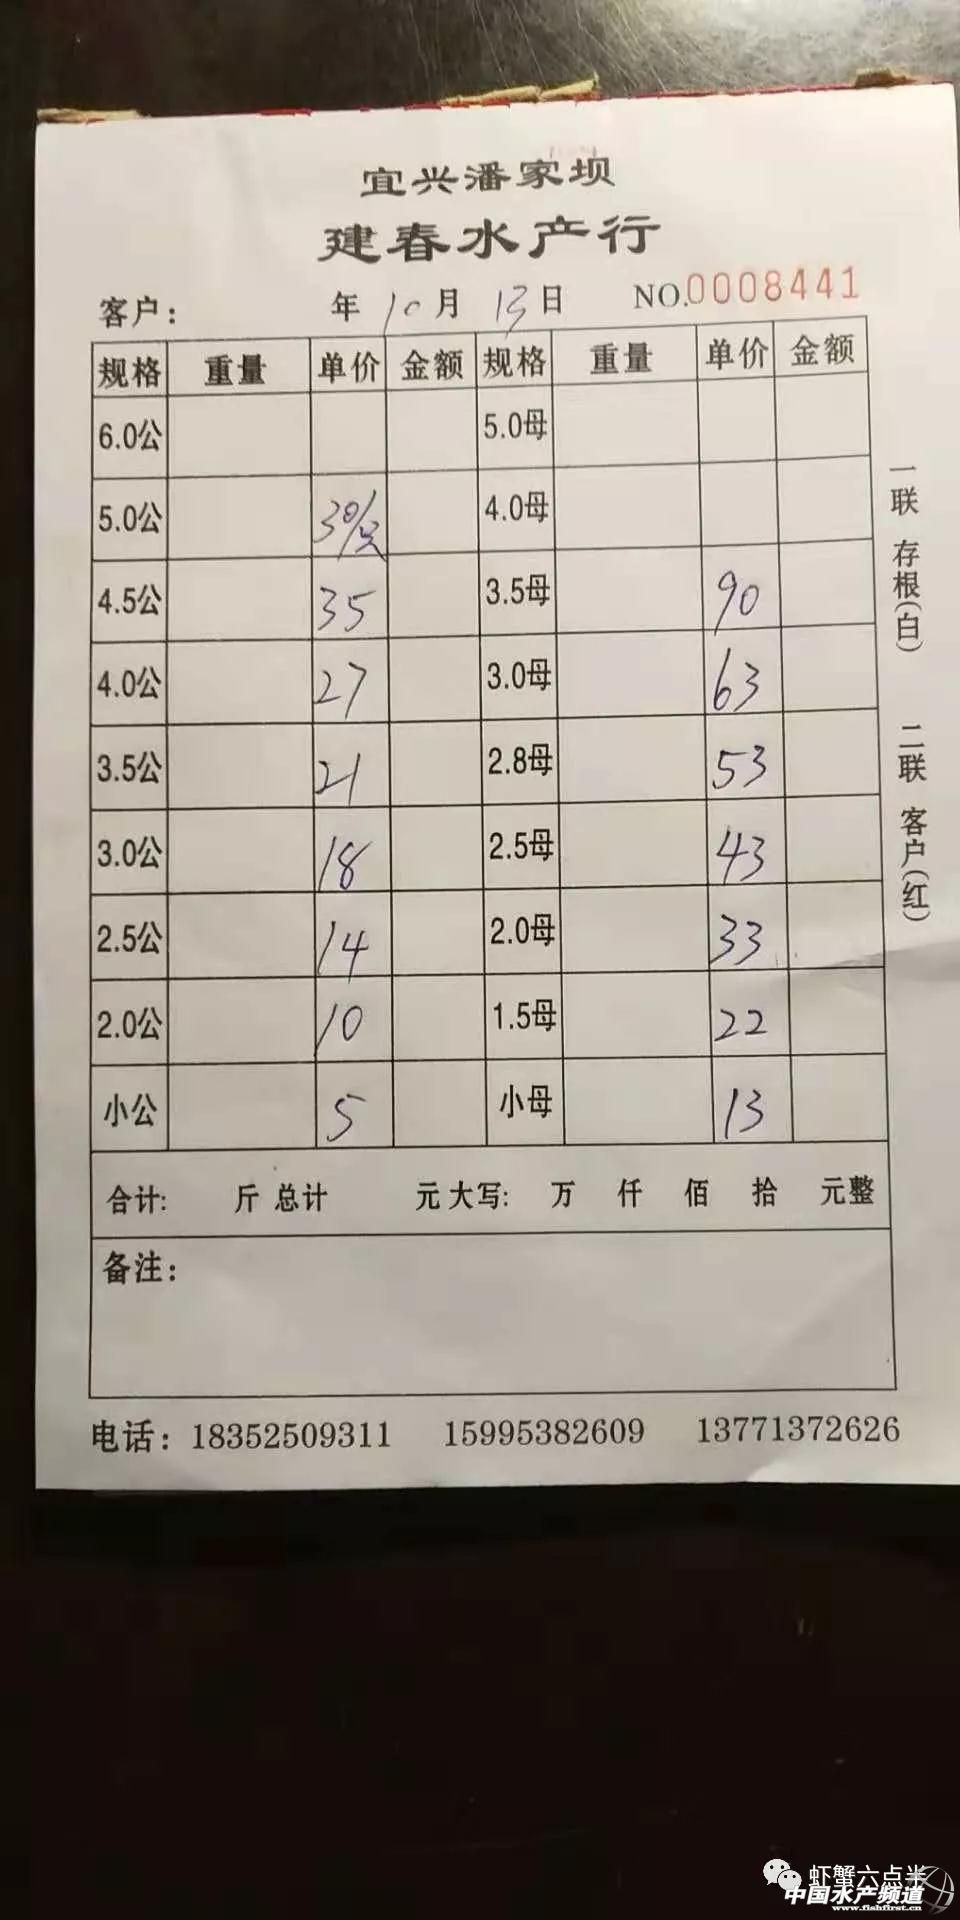 宜兴潘家坝
建春水产行
客户： 年 10 月 13 日 NO.0008441
规格 重量 单价 金额 规格 重量 单价 金额
6.0公 5.0母
5.0公 30/只 4.0母
4.5公 35 3.5母 90
4.0公 27 3.0母 63
3.5公 21 2.8母 53
3.0公 18 2.5母 43
2.5公 14 2.0母 33
2.0公 10 1.5母 22
小公 5 小母 13
合计: 斤 总计 元 大写: 万 仟 佰 拾 元整
备注：
电话：18352509311 15995382609 13771372626
一联 存根(白) 二联 客户(红)
虾蟹六点半
中国水产频道
www.fishfirst.cn